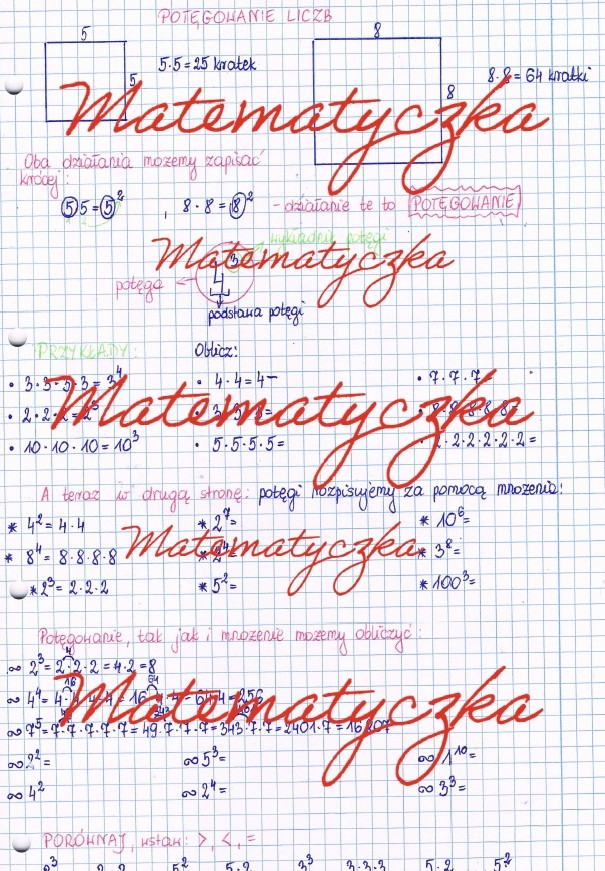 POTĘGOWANIE LICZB
5
5
5·5=25 kratek
8
8
8·8=64 kratki
Matematyczka
Oba działania możemy zapisać
krócej:
5·5=5², 8·8=8² - działanie te to POTĘGOWANIE
Matematyczka
wykładnik potęgi
4³
potęga
podstawa potęgi
PRZYKŁADY: Oblicz:
• 3·3·3·3=3⁴ • 4·4=4 • 7·7·7=
Matematyczka
• 2·2·2=2³
• 10·10·10=10³ • 5·5·5·5= 2·2·2·2·2·2=
A teraz w drugą stronę: potęgi rozpisujemy za pomocą mnożenia:
* 4²=4·4 * 2⁷= * 10⁶=
* 8⁴=8·8·8·8 * 3⁸=
Matematyczka
* 2³=2·2·2 * 5²= * 100³=
Potęgowanie, tak jak i mnożenie możemy obliczyć:
∞ 2³=2·2·2=4·2=8
∞ 4⁴=4·4·4·4=16·4·4=64·4=256
Matematyczka
∞ 7⁵=7·7·7·7·7=49·7·7·7=343·7·7=2401·7=16 807
∞ 2²= ∞ 5³= ∞ 1¹⁰=
∞ 4² ∞ 2⁴= ∞ 3³=
PORÓWNAJ, wstaw: >, <, =
2³ 2·2 5² 5·2 3³ 3·3·3 5·2 5²